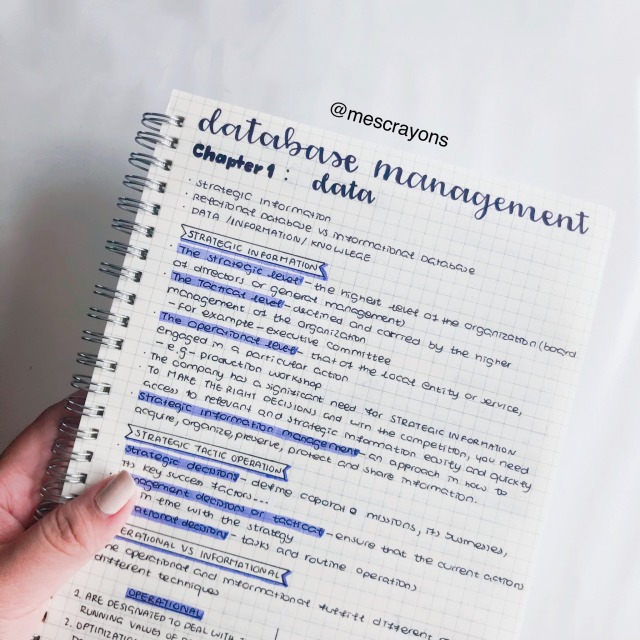 @mescrayons
database management
Chapter 1: data
· Strategic information
· Relational Database vs informational Database
· DATA / INFORMATION / KNOWLEGE
STRATEGIC INFORMATION
· The strategic level - the highest level of the organization (board
of directors or general management)
· The Tactical level - declined and carried by the higher
management of the organization
- for example - executive committee
· The operational level - that of the local entity or service,
engaged in a particular action
- e.g - production workshop
· The company has a significant need for STRATEGIC INFORMATION
· TO MAKE THE RIGHT DECISIONS and win the competition, you need
access to relevant and strategic information easily and quickly
Strategic information management - an approach in how to
acquire, organize, preserve, protect and share information.
STRATEGIC TACTIC OPERATION
· Strategic decisions - define missions, its businesses,
its key success factors...
agement decisions or tactical - ensure that the current actions
in time with the strategy
ational decision - tasks and routine operations
ERATIONAL VS INFORMATIONAL
operational and informational different
different techniques
OPERATIONAL
2. ARE DESIGNATED TO DEAL WITH
RUNNING VALUES OF
2. OPTIMIZATION